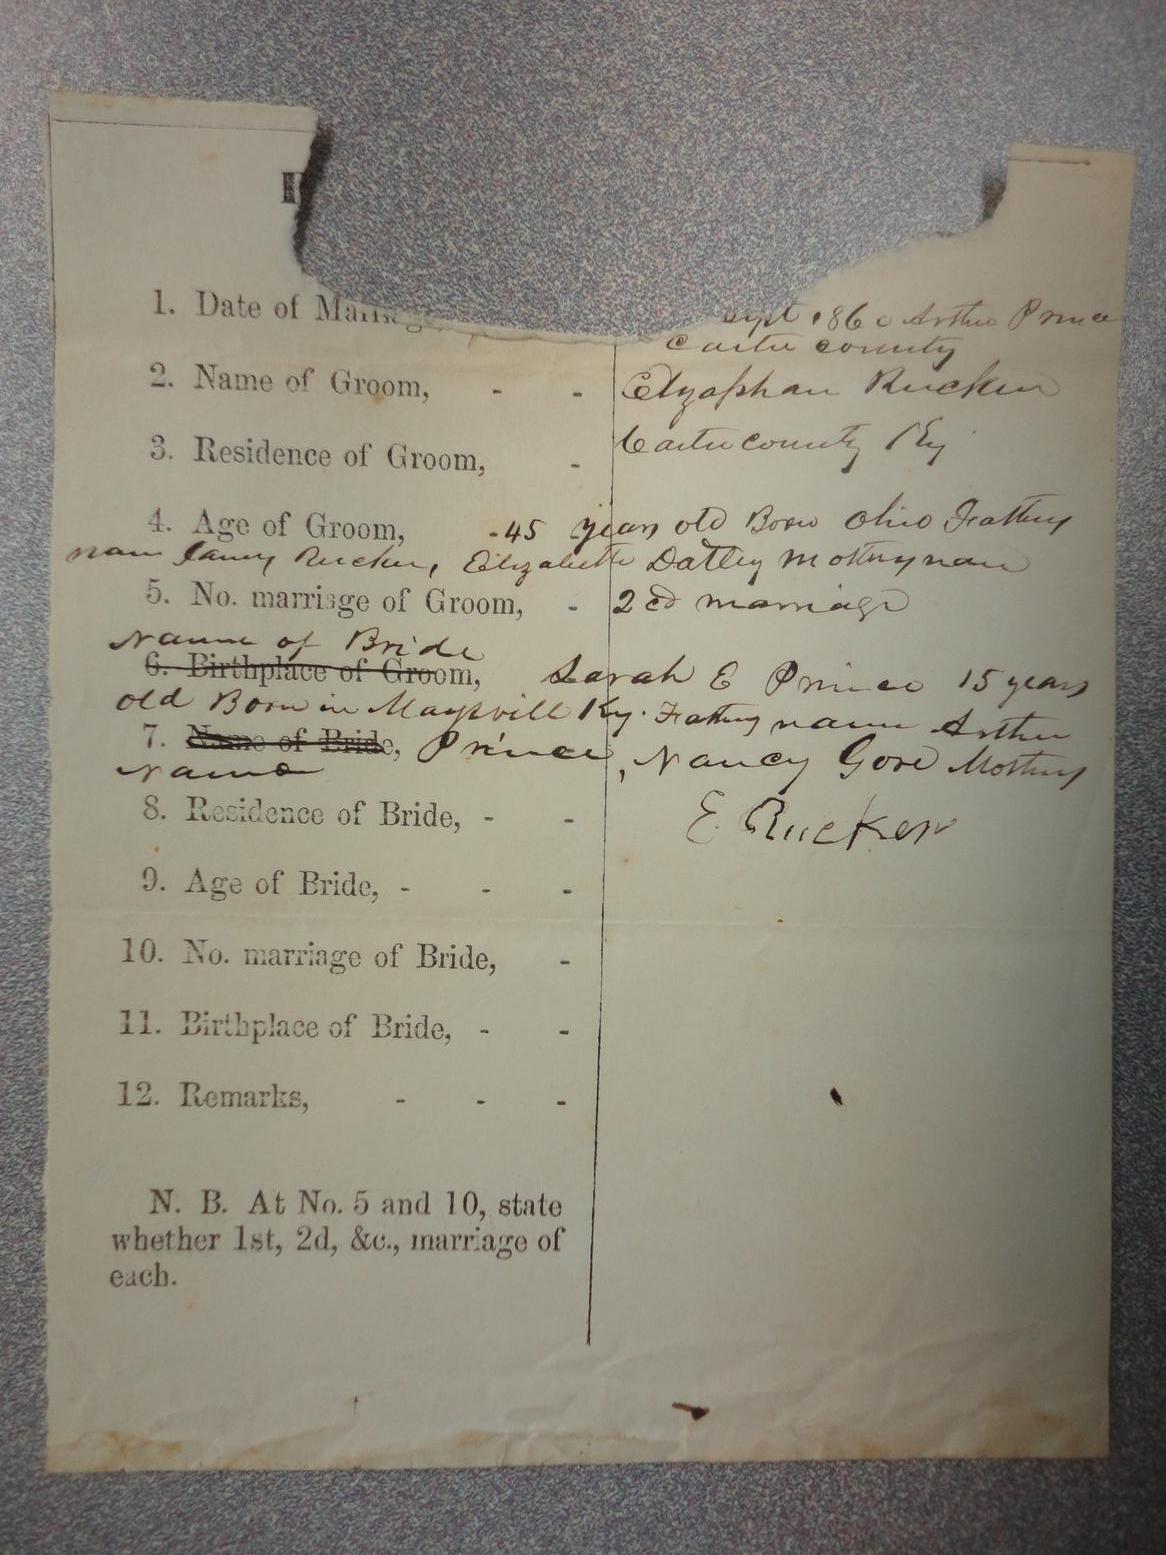 1. Date of Marriage, Sept 186 Arthu Prince
Cartu county
2. Name of Groom, - - Elzaphan Rucker
3. Residence of Groom, - Cartu county Ky
4. Age of Groom, - 45 years old Born Ohio Fathers
nam Rucker, Elizabeth Datley Mothers nam
5. No. marriage of Groom, - 2cd marriage
Name of Bride
6. Birthplace of Groom, Sarah E Prince 15 years
old Born in Maysvill Ky. Fathers name Arthur
7. Name of Bride, Prince, Nancy Gore Mothers
Name
8. Residence of Bride, - - E. Rucker
9. Age of Bride, - - -
10. No. marriage of Bride, -
11. Birthplace of Bride, - -
12. Remarks, - - -
N. B. At No. 5 and 10, state
whether 1st, 2d, &c., marriage of
each.